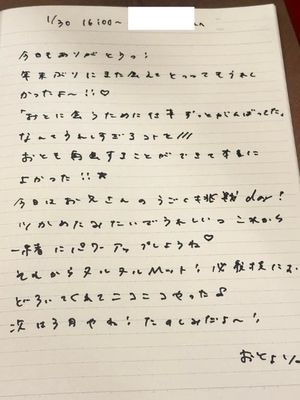 1/30 16:00〜
今日もありがとうっ!
年末ぶりにまた会えてとってもうれし
かったよ〜!!♡
「おとに会うために仕事ずっとがんばってた」
なんてうれしすぎるコトを///
おとも再会することができて本当に
よかった!!★
今日はお兄さんのうごくな挑戦day!
ツカめたみたいでうれしいっ これから
一緒にパワーアップしようね♡
それからヌルヌルMット! 必殺技にお
どろいてくれてニコニコやった♪
次は3月やね! たのしみだよ〜!
おとより